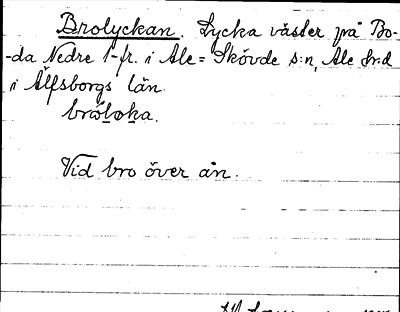 Brolyckan. Lycka väster på Bo-
-da Nedre 1-fr. i Ale=Skövde s:n, Ale hrd
i Älfsborgs län.
brolo̬ka.
Vid bro över ån.